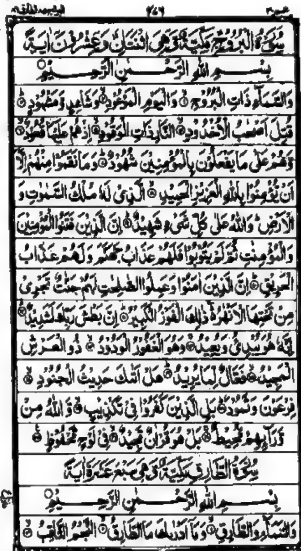 سورة البروج مكية وهي اثنتان وعشرون اية
بسم الله الرحمن الرحيم
والسماء ذات البروج واليوم الموعود وشاهد ومشهود
قتل اصحب الاخدود النار ذات الوقود اذ هم عليها قعود
وهم على ما يفعلون بالمؤمنين شهود وما نقموا منهم الا
ان يؤمنوا بالله العزيز الحميد الذي له ملك السموت و
الارض والله على كل شيء شهيد ان الذين فتنوا المؤمنين
والمؤمنت ثم لم يتوبوا فلهم عذاب جهنم ولهم عذاب
الحريق ان الذين امنوا وعملوا الصلحت لهم جنت تجري
من تحتها الانهر ذلك الفوز الكبير ان بطش ربك لشديد
انه هو يبدئ ويعيد وهو الغفور الودود ذو العرش
المجيد فعال لما يريد هل اتىك حديث الجنود
فرعون وثمود بل الذين كفروا في تكذيب والله من
ورائهم محيط بل هو قران مجيد في لوح محفوظ
سورة الطارق مكية وهي سبع عشرة اية
بسم الله الرحمن الرحيم
والسماء والطارق وما ادرىك ما الطارق النجم الثاقب